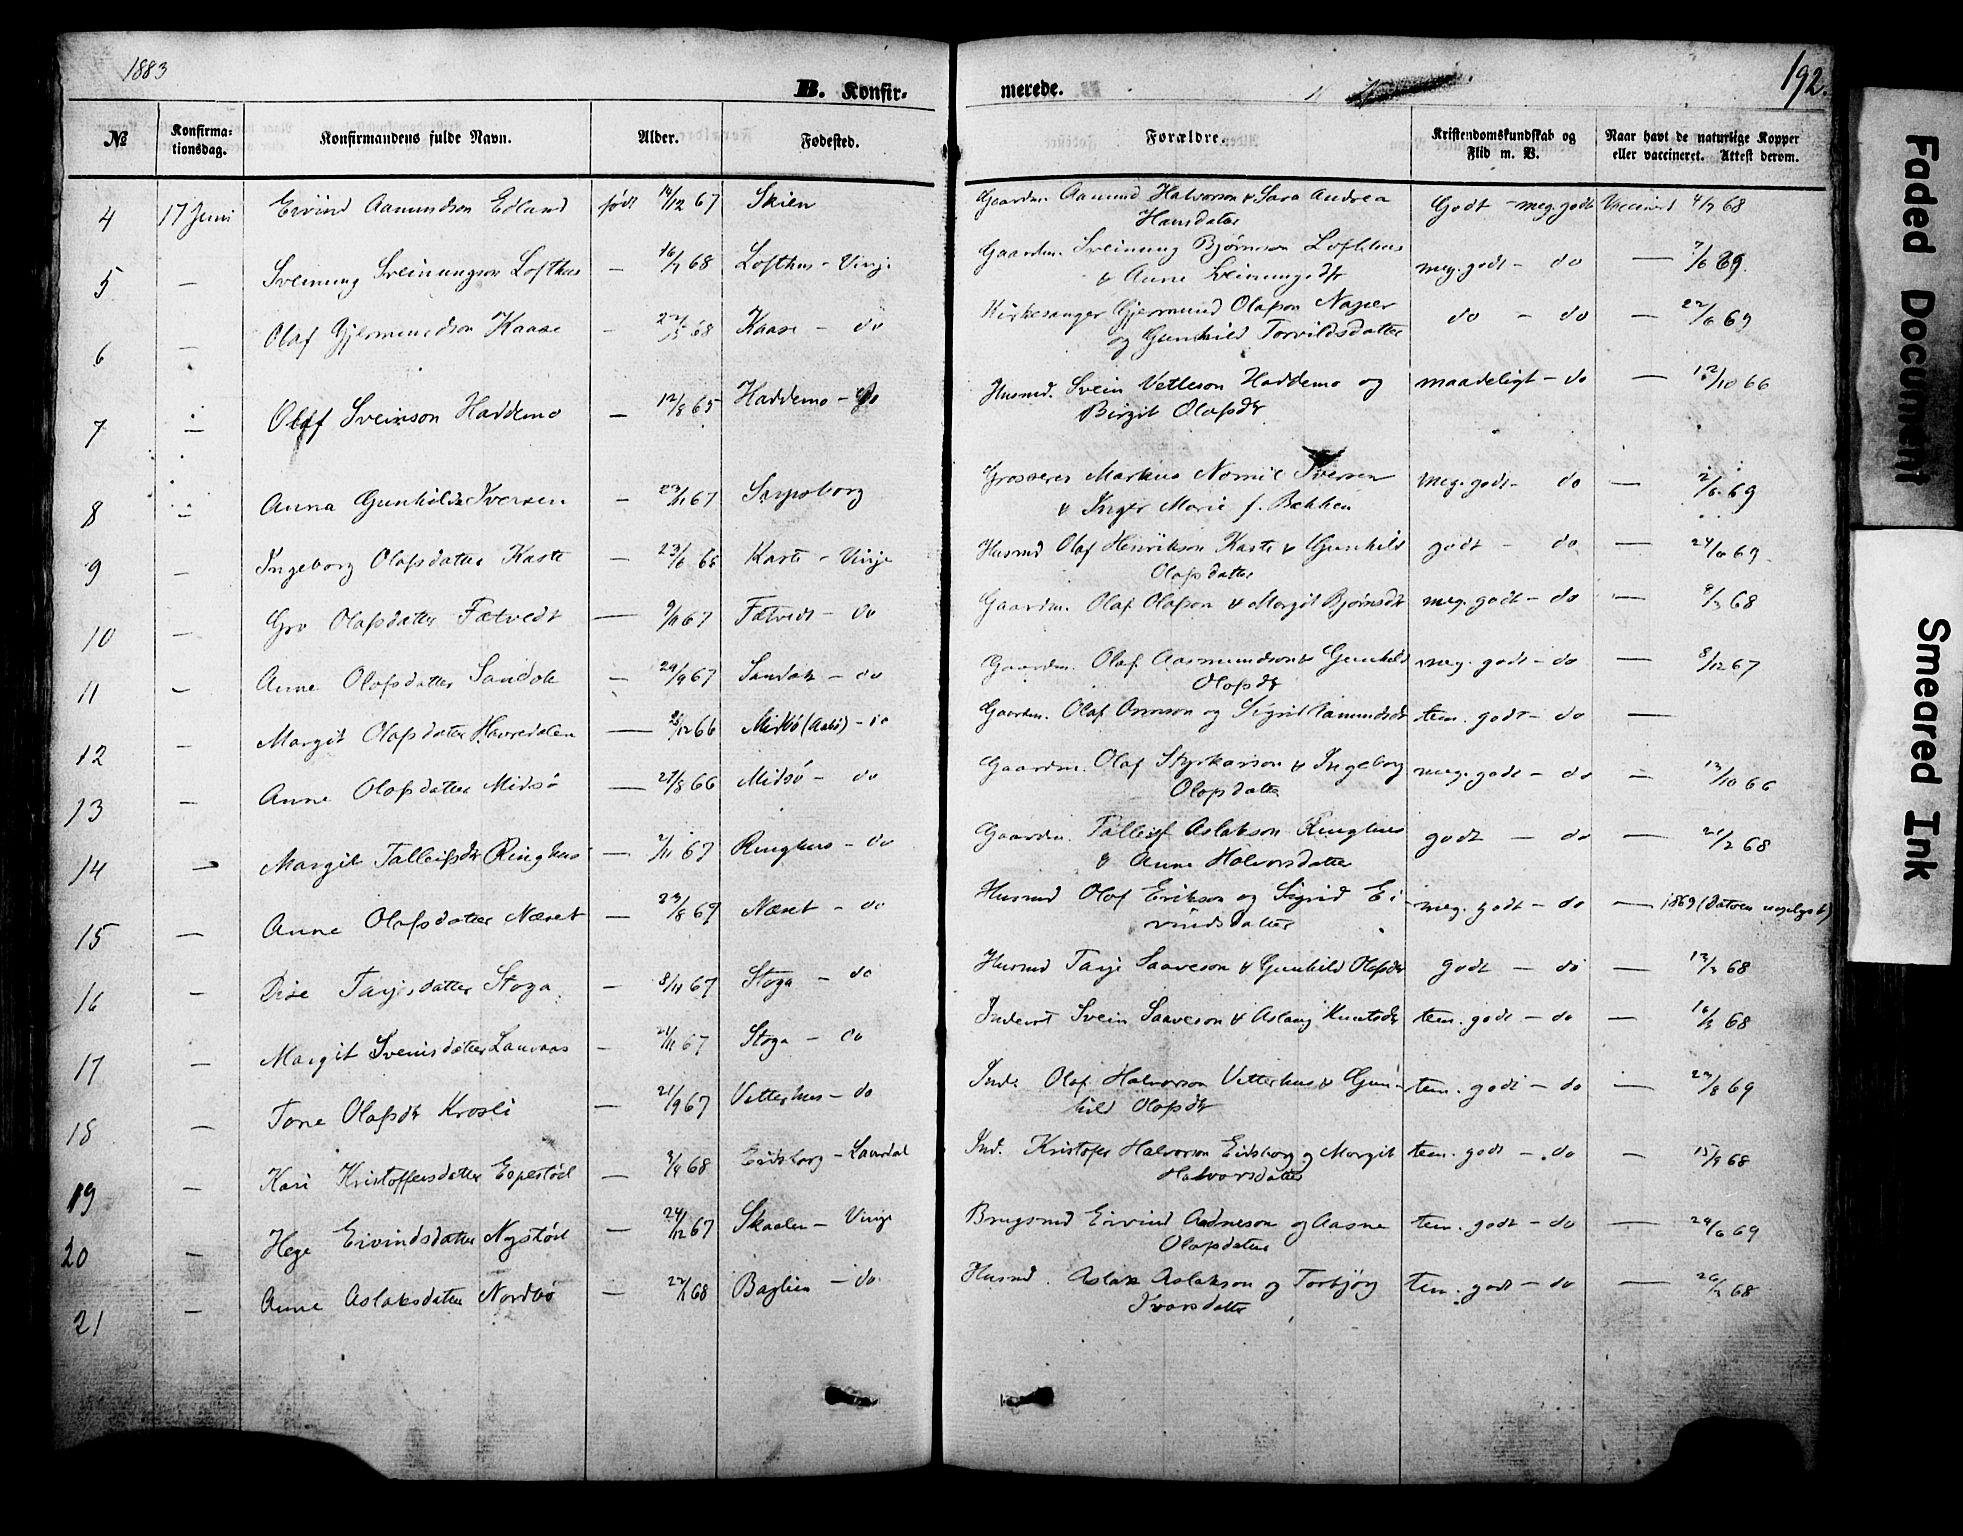 1883
192.
B. Konfir- merede.
№ Konfirma- tionsdag. Konfirmandens fulde Navn. Alder. Fødested. Forældre. Kristendomskundskab og Flid m. V. Naar havt de naturlige Kopper eller vaccineret. Attest derom.
4 17 Juni Eivind Aamundson Edland født 14/12 67 Skien Gaardm. Aamund Halvorson & Sara Andrea Godt - meg. godt Vaccinerd 4/7 68
Hansdatter
5 — Sveinung Sveinungson Lofthus — 16/1 68 Lofthus - Vinje Gaardm. Sveinung Bjørnson Lofthus meg. godt - do — 7/6 69.
& Anne Sveinungsdtr
6 — Olaf Gjermundson Kaase — 68 Kaase - do Kirkesanger Gjermund Olafson do - do — 22/6 69
og Gunhild Torvildsdatter
7 — Olaf Sveinson Haddemo — 12/8 65 Haddemo - do Husmd. Svein Vetleson Haddemo og maadeligt - do — 12/10 66
Birgit Olafsdtr
8 — Anna Gunhilda Iversen — 23/1 67 Sarpsborg Grosserer Markus Iversen meg. godt - do — 2/6 69
& Inger Marie f. Bakken
9 — Ingeborg Olafsdatter Kaste — 23/6 Kaste - Vinje Husmd Olaf Henrikson Kaste & Gunhild godt - do — 24/6 69.
Olafsdatter
10 — Gro Olafsdatter Fætvedt — 9/11 67 Fætvedt - do Gaardm. Olaf Olafson & Margit Bjørnsdtr meg. godt - do — 9/3 68
11 — Anne Olafsdatter Sandok — 29/9 67 Sandok - do Gaardm. Olaf Aasmundson & Gunhild meg. godt - do — 8/12 67
Olafsdtr
12 — Margit Olafsdatter Havredalen — /12 66 Midbø (Aabø) - do Gaardm. Olaf Ormson og Sigrid Aamundsdtr tem. godt - do —
13 — Anne Olafsdatter Midsø — 27/8 66 Midsø - do Gaardm. Olaf Styrkarson & Ingeborg meg. godt - do — 13/10 66
Olafsdatter
14 — Margit Talleifsdtr Ringhus — 2/11 67 Ringhus - do Gaardm. Talleif Aslakson Ringhus godt - do — 21/2 68
& Anne Halvorsdatter
15 — Anne Olafsdatter Næset — 23/8 67 Næset - do Husmd Olaf Erikson og Sigrid Ei- meg. godt - do — 1869 (datoen uoplyst)
vindsdatter
16 — Dise Tarjesdatter Stoga — 8/11 67 Stoga - do Husmd Tarje Saaveson & Gunhild Olafsdtr godt - do — 13/3 68
17 — Margit Sveinsdatter Lauvaas — 21/11 67 Stoga - do Inderst Svein Saaveson & Aslaug Knutsdtr tem. godt - do — 68
18 — Tone Olafsdtr Krosli — 21/9 67 Vetterhus - do Inds. Olaf Halvorson Vetterhus & Gun- tem. godt - do — 23/8 69
hild Olafsdtr
19 — Kari Kristoffersdatter Espestøl — 3/4 68 Eidsborg - Laurdal Ind. Kristofer Halvorson Eidsborg og Margit tem. godt - do — 15/9 68
Halvorsdatter
20 — Hege Eivindsdatter Nystøil — 24/12 67 Skaalen - Vinje Brugsmd Eivind Aadneson og Aasne tem. godt - do — 29/6 69
Olafsdatter
21 — Anne Aslaksdatter Nordbø — 22/1 68 Baglien - do Husmd. Aslak Aslakson og Torbjørg tem. godt - do — 26/3 68
Ivarsdatter
Faded Document
Smeared Ink